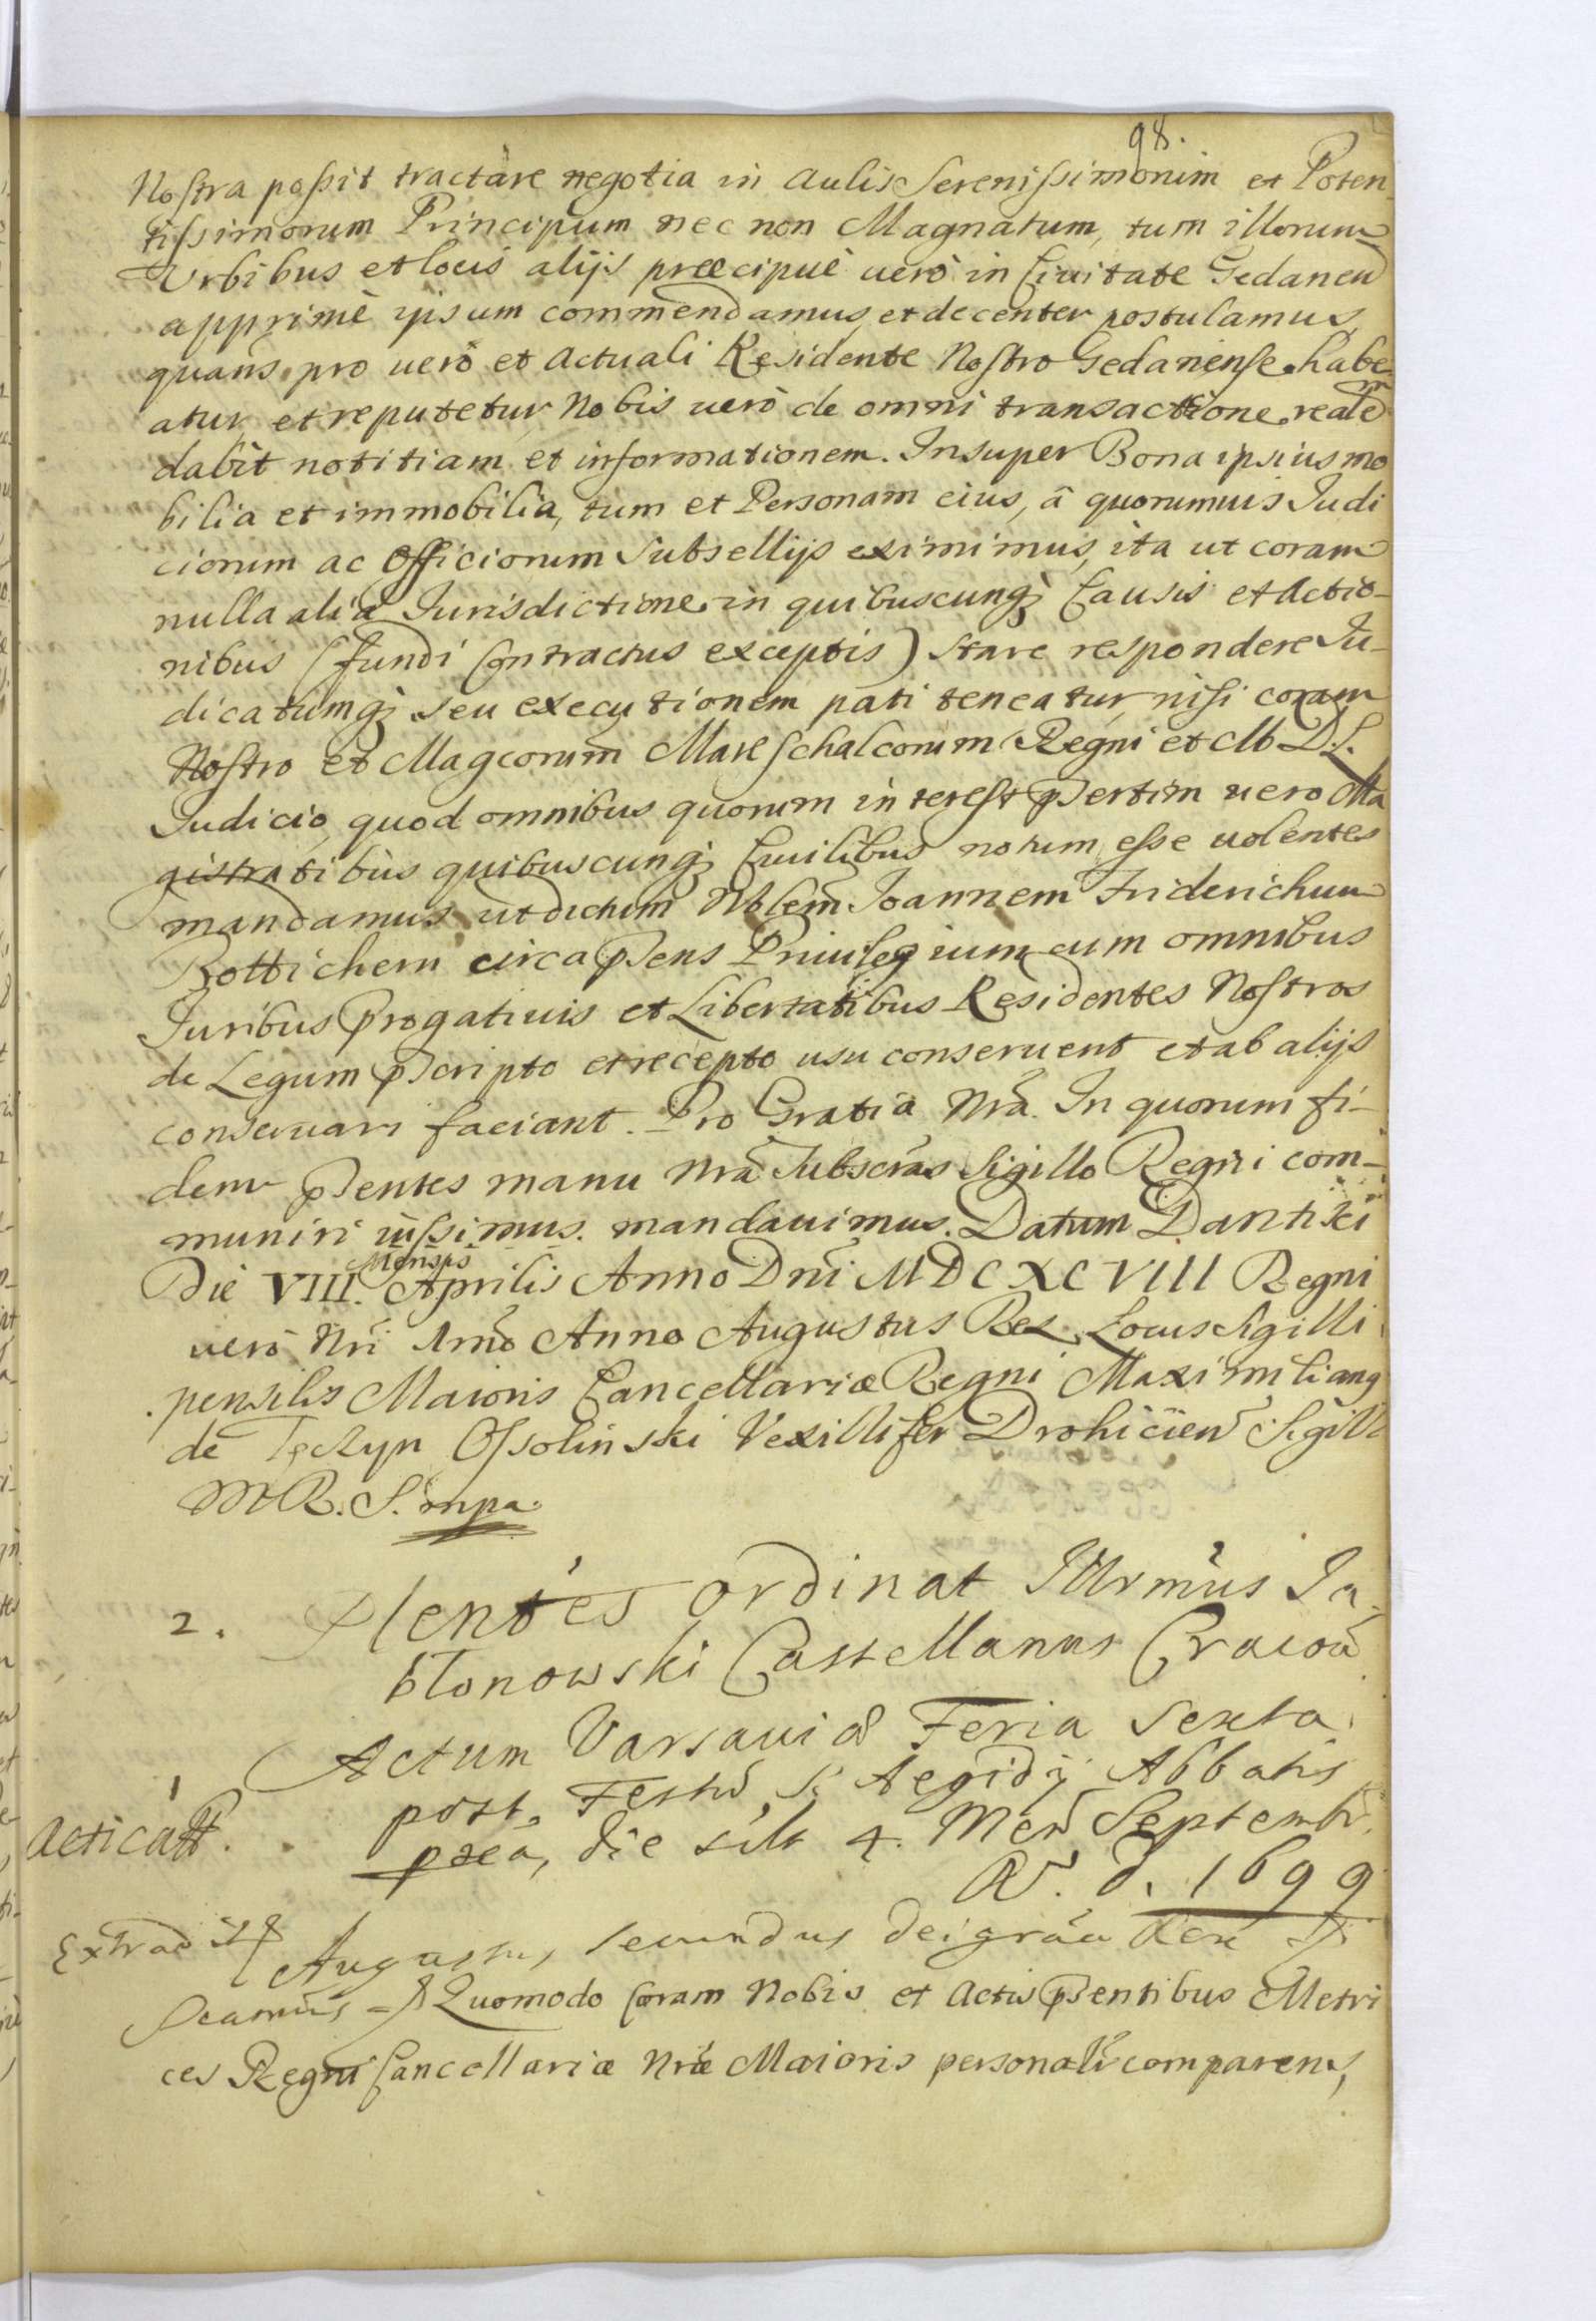 98.
Nostra possit tractare negotia in Aulis Serenissimorum et Poten
tissimorum Principum nec non Magnatum, tum illorum
Urbibus et locis alijs præcipuè uerò in Ciuitate Gedanen
apprimè ipsum commendamus, et decenter postulamus,
quaūs pro uerò et actuali Residente Nostro Gedanense habe
atur et reputetur Nobis uerò de omni transactione realem
dabit notitiam et informationem. Insuper Bona ipsius mo
bilia et immobilia, tum et Personam eius, â quorumuis Judi
ciorum ac Officiorum Subsellijs eximimus, ita ut coram
nulla aliâ Jurisdictione in quibuscunq; Causis et Actio-
nibus (fundi Contractus exceptis) stare respondere Ju-
dicatumq; seu executionem pati teneatur, nisi coram
Nostro et Magcorum Mareschalcorum Regni et M. D. L.
Judicio, quod omnibus quorum interest pSertim uero Ma
gistratibus quibuscunq; Ciuilibus notum esse uolentes
mandamus ut dictum Nblem Joannem Friderichum
Bottichern circa pSens Priuilegium cum omnibus
Juribus Progatiuis et Libertatibus Residentes Nostros
de Legum pScripto et recepto usu conseruent et ab alijs
conseruari faciant. Pro Gratia Nrã. In quorum fi-
dem pSentes manu Nrã Subscras Sigillo Regni com-
muniri iussimus. mandauimus. Datum Dantisci
Die VIII. Mensis Aprilis Anno Dni MDCXCVIII Regni
uerò Nri 1mo Anno Augustus Rex. Locus Sigilli
pensilis Maioris Cancellariæ Regni Maximiliang
de Tęczyn Ossolinski Vexillifer Drohicien Sigill
M R. S. mpa.
2. pSentes ordinat Illrmus Ja
błonowski Castellanus Cracou
Actum Varsauiæ Feria Sexta
post Festū S. Aegidij Abbatis
Acticatt. pxeâ, die scilt 4. Men Septembr.
A. D. 1699
Extradit Augustus secundus Dei grãa Rex
Quomodo Coram Nobis et Actis pSentibus Metri
ces Regni Cancellariæ Nræ Maioris personalr comparens,